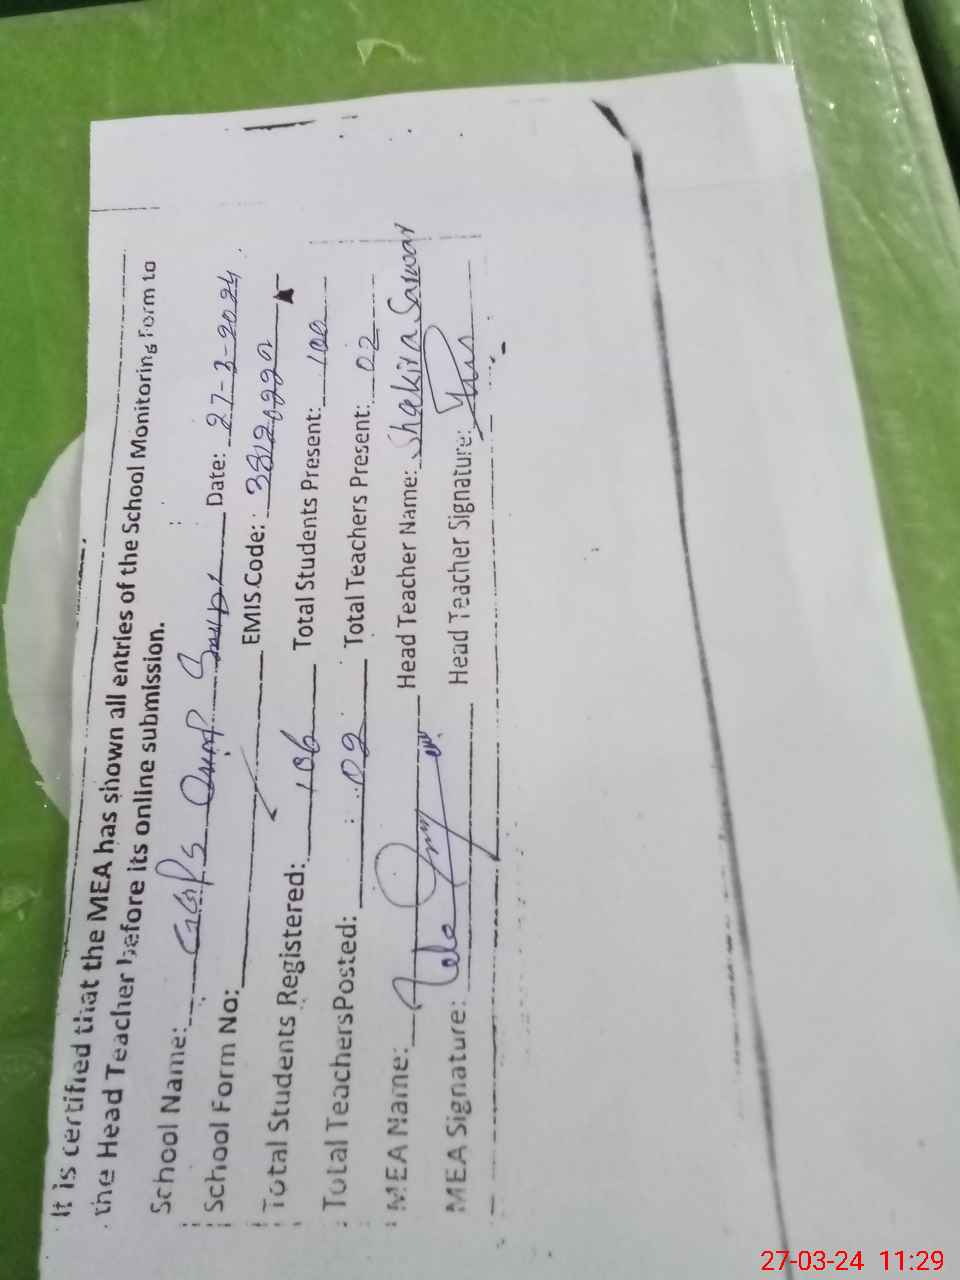 It is certified that the MEA has shown all entries of the School Monitoring Form to
the Head Teacher before its online submission.
School Name: GGPS Date: 27-3-2024
School Form No: EMIS.Code: 38120220
Total Students Registered: 106 Total Students Present: 100
Total Teachers Posted: 02 Total Teachers Present: 02
MEA Name: Head Teacher Name: Shakira Sarwar
MEA Signature: Head Teacher Signature:
27-03-24 11:29